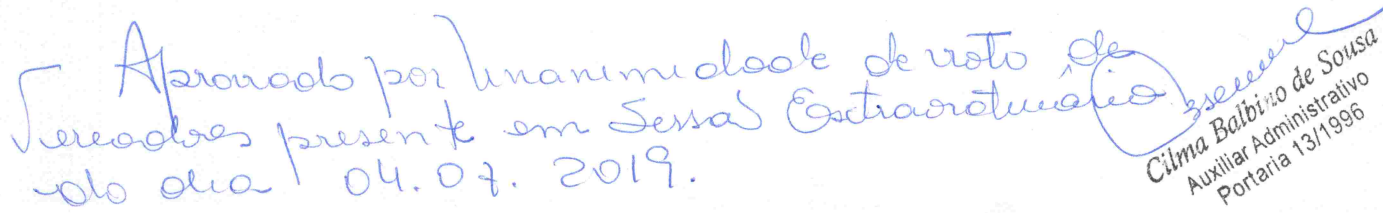 Aprovado por Unanimidade de voto de
Vereadores presente em Sessão Extraordinário
do dia 04.07.2019.
Cilma Balbino de Sousa
Auxiliar Administrativo
Portaria 13/1996